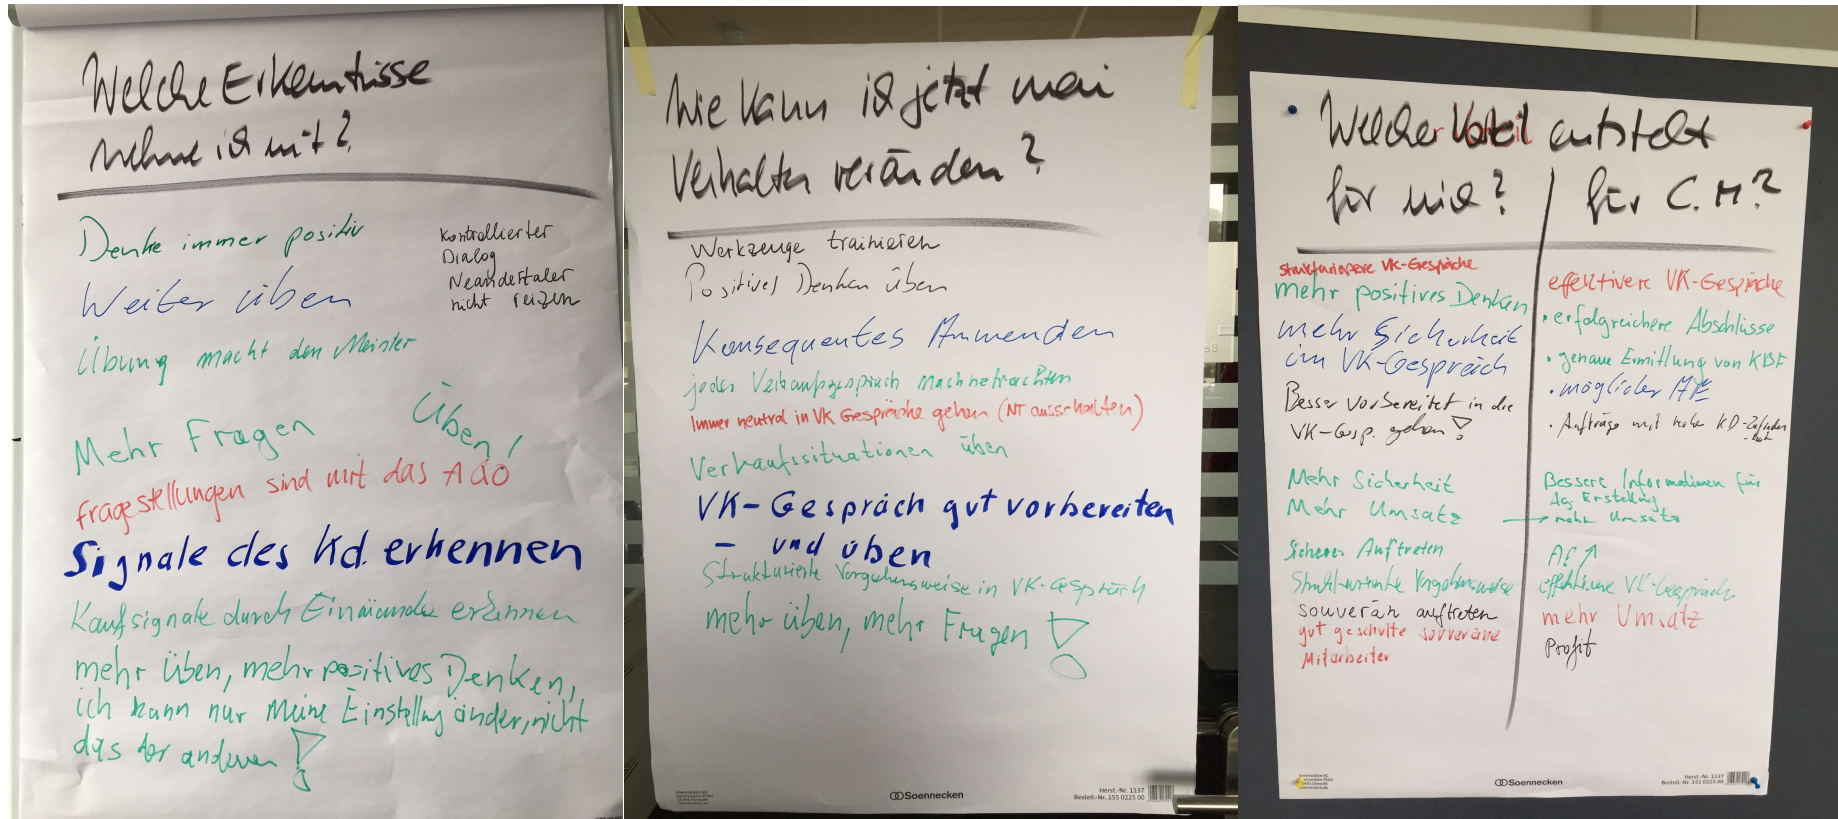 Welche Erkenntnisse
nehme ich mit?
Denke immer positiv
Kontrollierter
Dialog
Neandertaler
nicht reizen
Weiter üben
Übung macht den Meister
Üben!
Mehr Fragen
Fragestellungen sind mit das A & O
Signale des Kd. erkennen
Kaufsignale durch Einwände erkennen
mehr üben, mehr positives Denken,
ich kann nur meine Einstellung änder, nicht
das der anderen!
Wie kann ich jetzt mein
Verhalten verändern?
Werkzeuge trainieren
Positives Denken üben
Konsequentes Anwenden
jedes Verkaufsgespräch nachbetrachten
Immer neutral in VK Gespräche gehen (NT ausschalten)
Verkaufssituationen üben
VK-Gespräch gut vorbereiten
- und üben
Strukturierte Vorgehensweise in VK-Gespräch
mehr üben, mehr Fragen!
Soennecken
Herst.-Nr. 1137
Bestell.-Nr. 155 0225 00
Welcher Vorteil entsteht
für mich?
für C.M?
strukturiertere VK-Gespräche
mehr positives Denken
mehr Sicherheit
im VK-Gespräch
Besser vorbereitet in die
VK-Gesp. gehen!
Mehr Sicherheit
Mehr Umsatz
Sicheres Auftreten
Strukturierte Vorgehensweise
souverän auftreten
gut geschulte souveräne
Mitarbeiter
effektivere VK-Gespräche
• erfolgreichere Abschlüsse
• genaue Ermittlung von KBF
• möglicher
• Aufträge mit hoher KD-Zufrieden
-heit
Bessere Informationen für
Ag. Erstellung
→ mehr Umsatz
AE ↗
effektivere VK-Gespräche
mehr Umsatz
Profit
Soennecken
Herst.-Nr. 1137
Bestell.-Nr. 155 0225 00